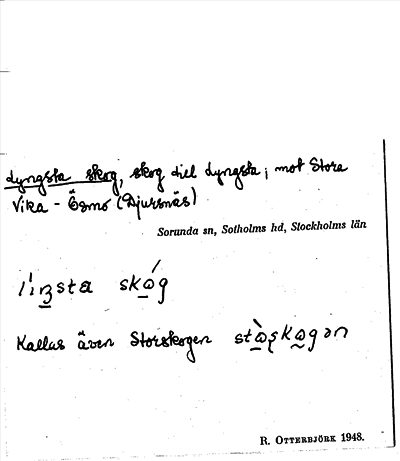 Lyngsta skog, skog till Lyngsta, mot Stora
Vika - Ösmo (Djursnäs)
Sorunda sn, Sotholms hd, Stockholms län
Kallas även Storskogen
R. OTTERBJÖRK 1948.